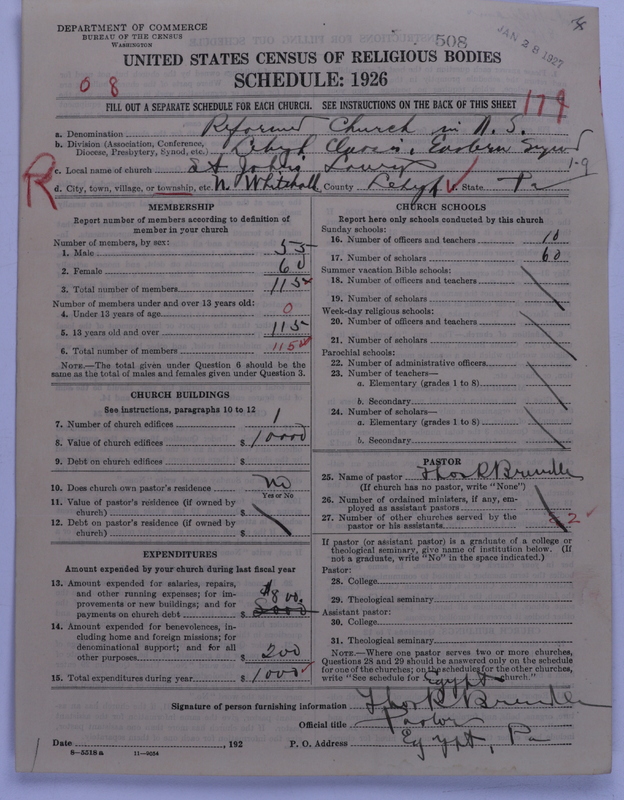 DEPARTMENT OF COMMERCE
BUREAU OF THE CENSUS
WASHINGTON
508
JAN 28 1927
UNITED STATES CENSUS OF RELIGIOUS BODIES
SCHEDULE: 1926
0 8
FILL OUT A SEPARATE SCHEDULE FOR EACH CHURCH. SEE INSTRUCTIONS ON THE BACK OF THIS SHEET
179
a. Denomination Reformed Church in U.S.
b. Division (Association, Conference, Diocese, Presbytery, Synod, etc.) Lehigh Classis, Eastern Synod
1-9
c. Local name of church St John's Laurys
R
d. City, town, village, or township, etc. N. Whitehall County Lehigh State Pa
MEMBERSHIP
Report number of members according to definition of member in your church
Number of members, by sex:
1. Male 55
2. Female 60
3. Total number of members 115
Number of members under and over 13 years old:
4. Under 13 years of age 0
5. 13 years old and over 115
6. Total number of members 115
NOTE.—The total given under Question 6 should be the same as the total of males and females given under Question 3.
CHURCH BUILDINGS
See instructions, paragraphs 10 to 12
7. Number of church edifices 1
8. Value of church edifices $ 10000
9. Debt on church edifices $
10. Does church own pastor's residence No
Yes or No
11. Value of pastor's residence (if owned by church) $
12. Debt on pastor's residence (if owned by church) $
EXPENDITURES
Amount expended by your church during last fiscal year
13. Amount expended for salaries, repairs, and other running expenses; for improvements or new buildings; and for payments on church debt $ $800.
14. Amount expended for benevolences, including home and foreign missions; for denominational support; and for all other purposes $ 200
15. Total expenditures during year $ 1000
CHURCH SCHOOLS
Report here only schools conducted by this church
Sunday schools:
16. Number of officers and teachers 10
17. Number of scholars 60
Summer vacation Bible schools:
18. Number of officers and teachers
19. Number of scholars
Week-day religious schools:
20. Number of officers and teachers
21. Number of scholars
Parochial schools:
22. Number of administrative officers
23. Number of teachers—
a. Elementary (grades 1 to 8)
b. Secondary
24. Number of scholars—
a. Elementary (grades 1 to 8)
b. Secondary
PASTOR
25. Name of pastor Thos R Brendle
(If church has no pastor, write "None")
26. Number of ordained ministers, if any, employed as assistant pastors
27. Number of other churches served by the pastor or his assistants 2
If pastor (or assistant pastor) is a graduate of a college or theological seminary, give name of institution below. (If not a graduate, write "No" in the space indicated.)
Pastor:
28. College
29. Theological seminary
Assistant pastor:
30. College
31. Theological seminary
NOTE.—Where one pastor serves two or more churches, Questions 28 and 29 should be answered only on the schedule for one of the churches; on the schedules for the other churches, write "See schedule for Egypt church."
Signature of person furnishing information Thos R Brendle
Official title Pastor
Date , 192 P. O. Address Egypt, Pa
8-5518a 11-9054